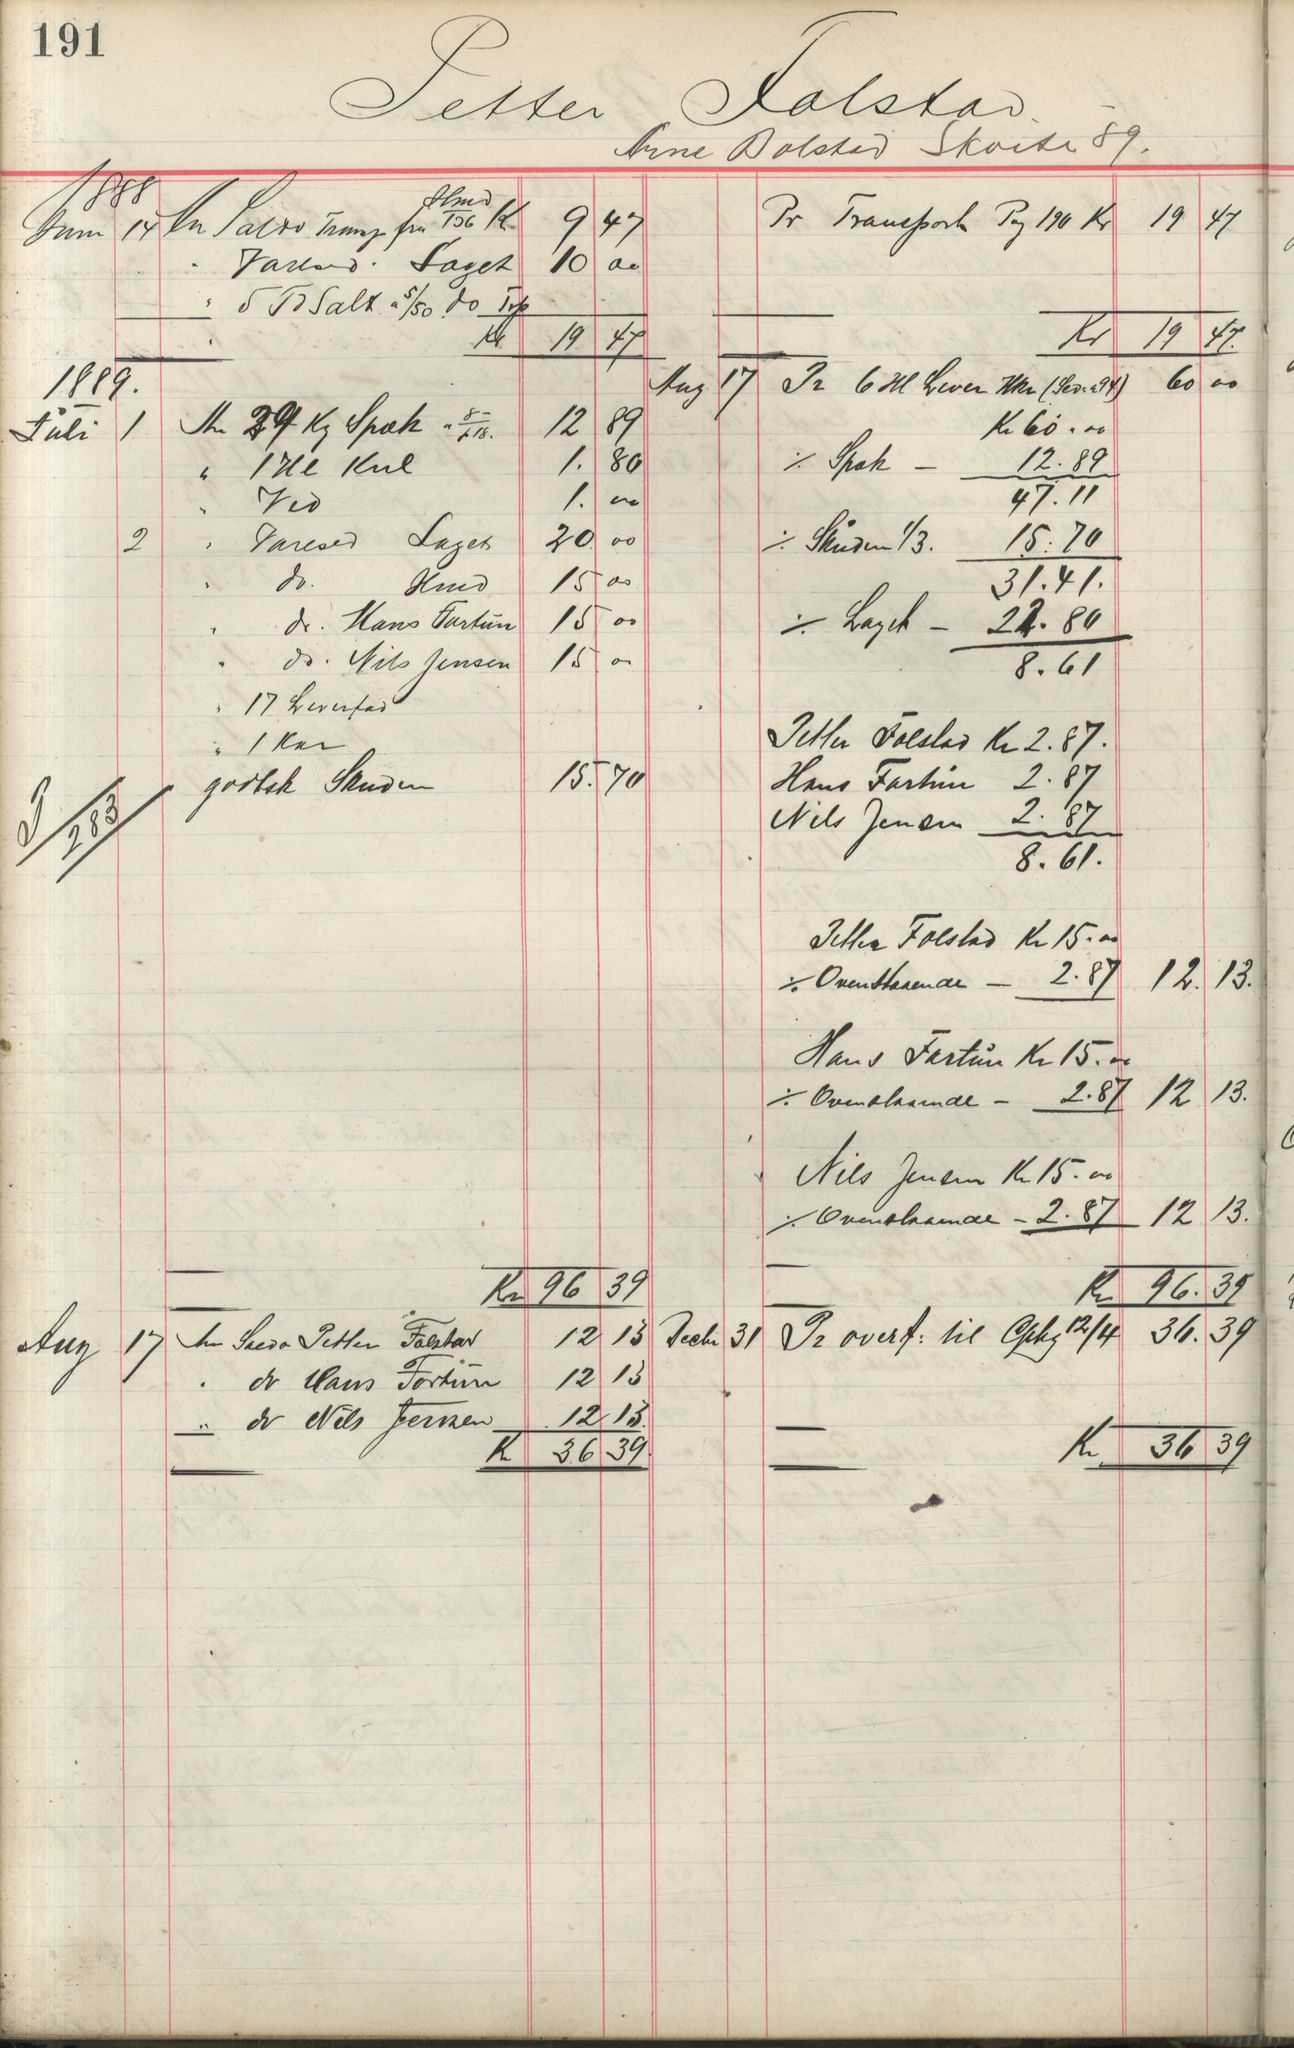 191
Petter Folstad
Arne Bolstad Skoite 89.
1888
Juni 14 An Saldo Transp fra Hmd 136 Kr 9 47
" Varesed. Laget 10 00
" 5 Td Salt a 5/50 do
Kr 19 47
1889.
Juli 1 An 29 Kg Spæk a 12 89
" 1 Hl Kul 1. 80
" Ved 1. 00
2 " Varesed Laget 20 00
" do. Hmd 15 00
" do. Hans Fortün 15 00
" do. Nils Jensen 15 00
" 17 Leverfad
" 1 Kar
godtsk Skuden 15. 70
283
Kr 96 39
Aug 17 An Saldo Petter Folstad 12 13
" do Hans Fortün 12 13
" do Nils Jensen 12 13
Kr 36 39
Pr Transport Pag 190 Kr 19 47
Kr 19 47
Aug 17 Pr 6 Hl Lever 60 00
Kr 60.00
÷ Spæk — 12.89
47.11
÷ Skuden 1/3. 15.70
31.41.
÷ Laget — 22.80
8.61
Petter Folstad Kr 2.87.
Hans Fortün 2.87
Nils Jensen 2.87
8.61.
Petter Folstad Kr 15.00
÷ Ovenstaaende — 2.87 12. 13.
Hans Fortün Kr 15.00
÷ Ovenstaaende — 2.87 12 13.
Nils Jensen Kr 15.00
÷ Ovenstaaende — 2.87 12 13.
Kr 96. 39
Decbr 31 Pr overf: til Opkg 12/4 36. 39
Kr 36 39